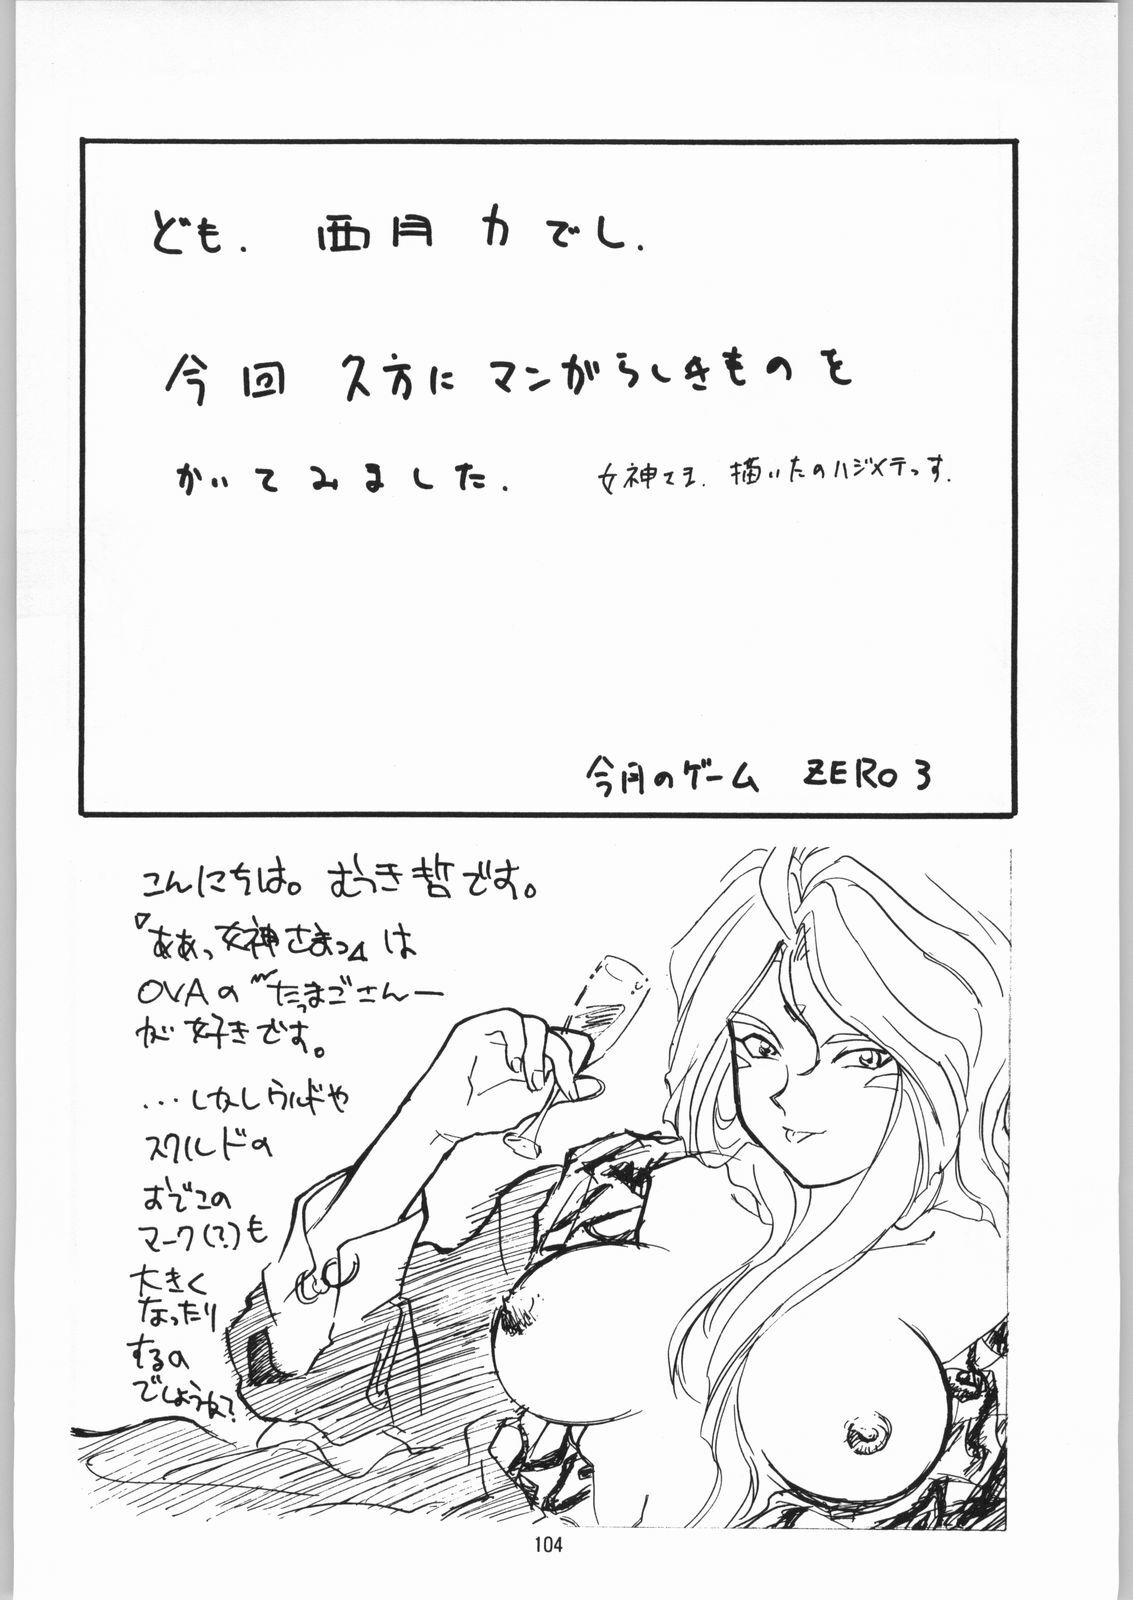 ども. 西月 力でし.
今回 久方に マンがらしきものを
かいてみました. 女神さま. 描いたのハジメテっす.
今月のゲーム ZERO 3
こんにちは。むつき哲です。
『ああっ女神さまっ』は
OVAの〝たまごさんー
が好きです。
...しかしウルドや
スクルドの
おでこの
マーク(?)も
大きく
なったり
するの
でしょうね?
104